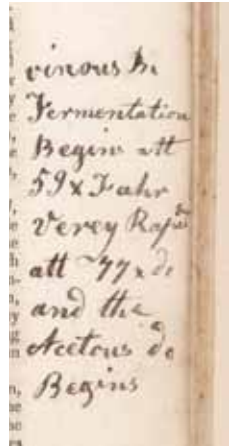 vinous In
Fermentation
Begin att
59 x Fahr
Verey Rapid
att 77 x do
and the
Acetous do
Begins